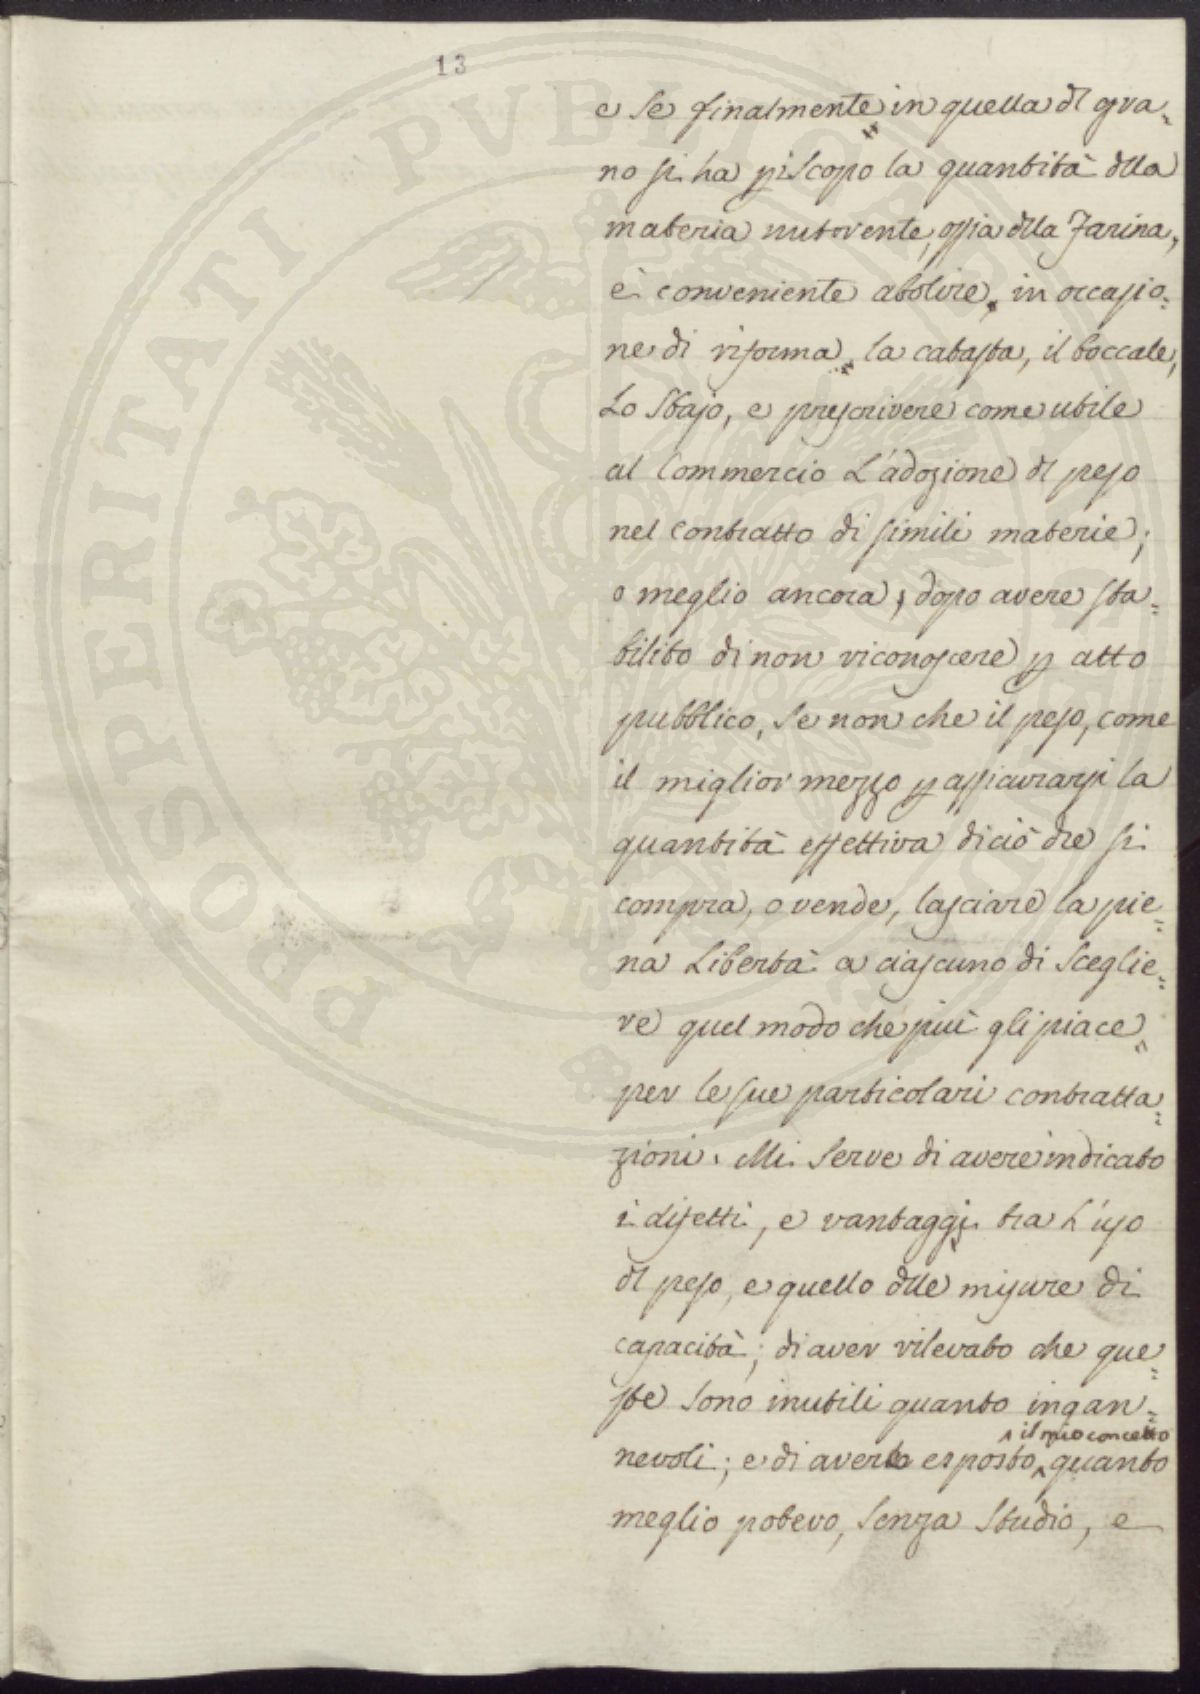 13
PROSPERITATI PVBLICAE
e se finalmente in quella dl gra=
no si ha p iscopo la quantità dlla
materia nutrente, ossia dlla Farina,
è conveniente abolire, in occasio=
ne di riforma, la catasta, il boccale,
Lo Stajo, e prescrivere come utile
al Commercio L'adozione dl peso
nel contratto di simili materie;
o meglio ancora, dopo avere sta=
bilito di non riconoscere p atto
pubblico, se non che il peso, come
il miglior mezzo p assicurarsi la
quantità effettiva di ciò che si
compra, o vende, lasciare la pie=
na Libertà a ciascuno di sceglie=
re quel modo che più gli piace
per le sue particolari contratta=
zioni. Mi serve di avere indicato
i difetti, e vantaggi tra L'uso
dl peso, e quello dlle misure di
capacità; di aver rilevato che que=
ste sono inutili quanto ingan=
il mio concetto
nevoli; e di avere esposto quanto
meglio potevo, senza studio, e